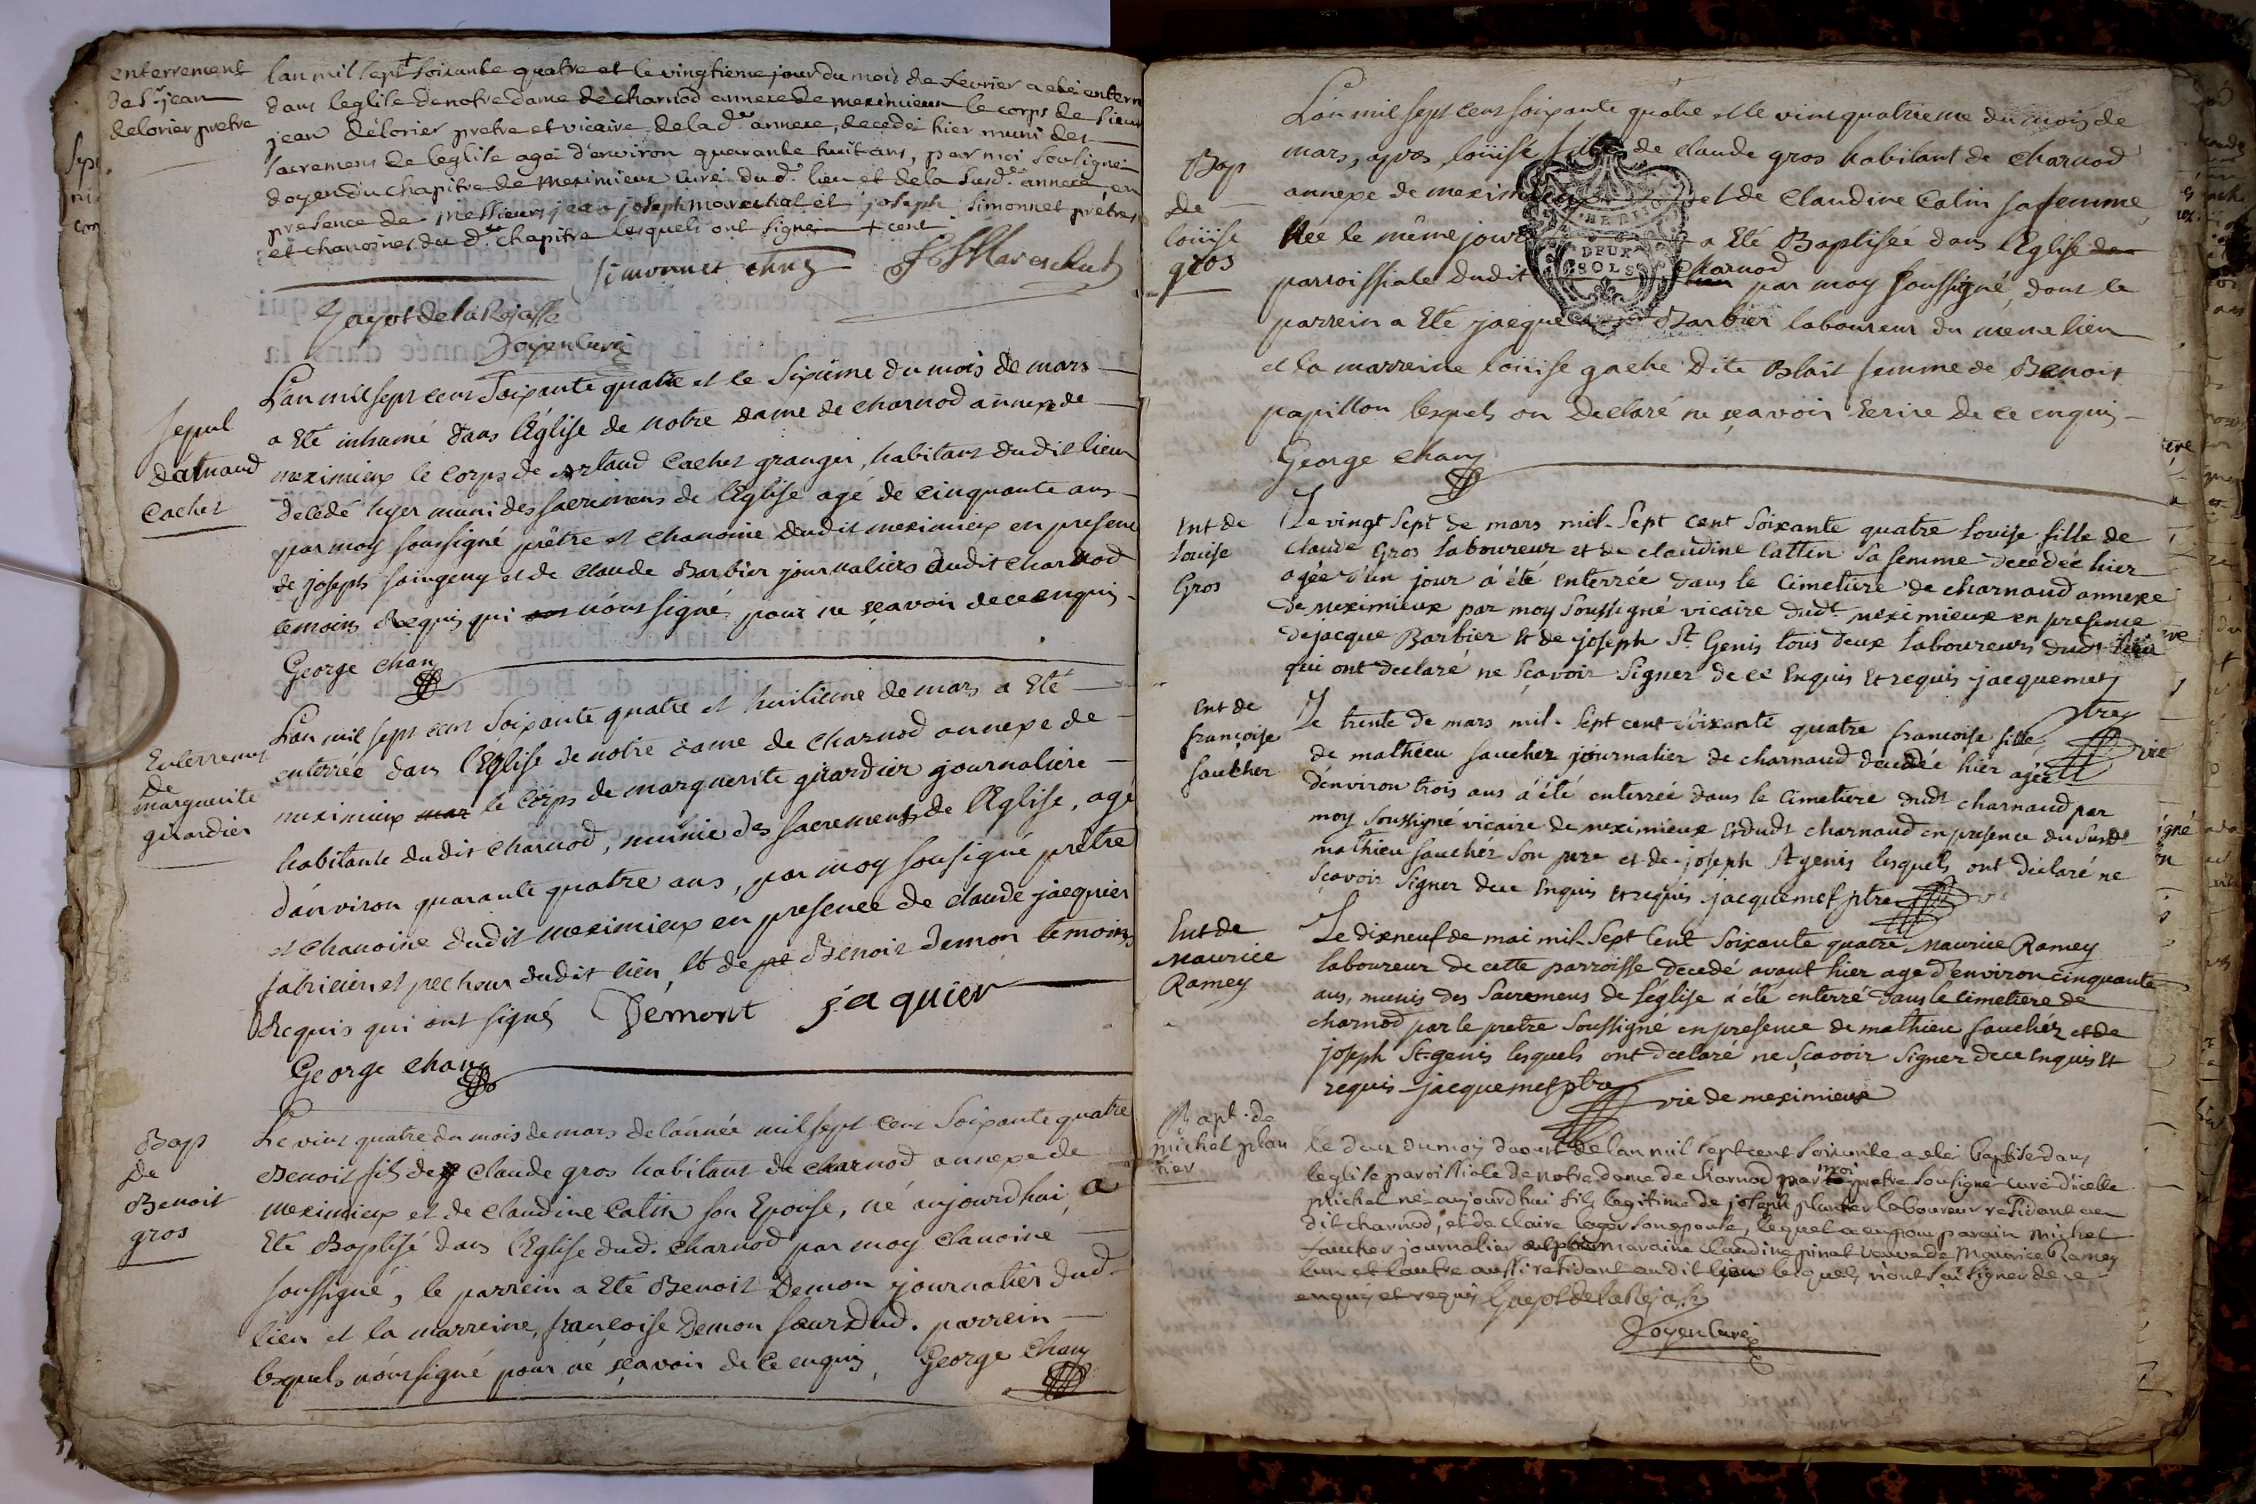 enterrement
de Sr jean
delorier pretre
lan mil sept + soixante quatre et le vingtieme jour du mois de fevrier a eté enterré
dans leglise de notre dame de charnod annexe de meximieux le corps de sieur
jean délorier pretre et vicaire de la de annexe, decedéi hier muni des
sacremens de leglise agéi d'environ quarante huit ans, par moi sousigné
doyen du chapitre de meximieux curé du d. lieu et de la susde annexe, en
presence de messieurs jean joseph marechal et joseph simonnet prétres
et chanoines du d. chapitre lesquels ont signé + cent
Simonnet chne J J Mareschal
Gayot de la Rejasse
Doyen curé
Sepul
d'arnaud
Cachet
L'an mil sept cent Soixante quatre et le Sixieme du mois de mars
a Eté inhumé dans l'Église de notre dame de charnod annexe de
meximieux le Corps de Artaud Cachet granger, habitant dudit lieu
decedé hyer muni des sacremens de l'Eglise agé de cinquante ans
par moy soussigné prêtre et chanoine dudit meximieux en presence
de joseph saingeny et de claude Barbier journaliers dudit charnod
temoins Requis qui n'ont signé pour ne sçavoir de ce enquis
George chan
Enterrement
de
marguerite
girardier
L'an mil sept cent Soixante quatre et huitieme de mars a Eté
enterrée dans l'Eglise de notre dame de charnod annexe de
meximieux mar le Corps de marguerite girardier journaliere
habitante dudit charnod, munie des sacrements de l'Eglise, agé
d'anviron quarante quatre ans, par moy sousigné prêtre
et chanoine dudit meximieux en presence de claude jacquier
fabricien et pecheur dudit lieu, Et de pe Benoit Demon temoins
Requis qui ont signés Demont jaquier
George chan
Bap
De
Benoit
gros
Le vint quatre du mois de mars de lánnée mil sept cent Soixante quatre
Benoit fils de claude gros habitant de charnod annexe de
meximieux et de claudine Catin son Epouse, né aujourdhui, a
Eté Baptisé dans l'Eglise dud. charnod par moy chanoine
soussigné, le parrein a Eté Benoit Demon journalier dud.
lieu et la marreine, françoise Demon sœur dud. parrein
lesquels n'ont signé pour né sçavoir de ce enquis, George chan
Bap
de
loüise
gros
L'an mil sept cent soixante quatre et le vint quatrieme du mois de
mars, apres, loüise fille de claude gros habitant de charnod
annexe de meximieux et de Claudine Catin sa femme
Née le même jour a Eté Baptisée dans l'Eglise de
parroissiale dudit charnod par moy soussigné, dont le
parrein a Eté jacque Barbier laboureur du même lieu
et la marreine loüise gache Dite Blait femme de Benoit
papillon lesquels on Declaré ne sçavoir Ecrire de ce enquis
George chan
DEUX
SOLS
Ent de
Louise
Gros
Le vingt Sept de mars mil. Sept cent Soixante quatre Louise fille de
claude Gros laboureur et de claudine Cattin sa femme decédée hier
agée d'un jour à été enterrée dans le Cimetiere de charnaud annexe
de meximieux par moy soussigné vicaire dudt meximieux en presence
de jacque Barbier et de joseph St. Genis tous deux laboureurs dudt lieu
qui ont declaré ne sçavoir signer de ce enquis et requis jacquemet
ptre vic
Ent de
françoise
faucher
Le trente de mars mil. Sept cent soixante quatre françoise fille
de mathieu faucher journalier de charnaud decedée hier agée
d'environ trois ans a été enterrée dans le Cimetiere dudt charnaud par
moy soussigné vicaire de meximieux et dudt charnaud en presence du susdt
mathieu faucher son pere et de joseph St genis lesquels ont déclaré ne
sçavoir signer de ce enquis et requis jacquemet ptre
Ent de
Maurice
Ramey
Le dixneuf de mai mil. Sept Cent Soixante quatre Maurice Ramey
laboureur de cette parroisse decedé avant hier age d'environ cinquante
ans, munis des Sacremens de l'église a été enterré dans le Cimetiere de
charnod par le pretre soussigné en presence de mathieu faucher et de
joseph St-genis lesquels ont declaré ne sçavoir signer de ce enquis et
requis jacquemet ptre
vic de meximieux
Bapt. de
michel plan
tier
le deux du moy daout de lan mil sept cent soixante a eté baptisé dans
leglise paroissiale de notre dame de charnod par moi pretre sousigné curé dicelle
michel né aujourdhui fils legitime de joseph plantier laboureur residant au
dit charnod, et de claire lager son epouse, lequel a eu pour parain michel
faucher journalier maraine claudine pinet veuve de Maurice Ramey
lun et lautre aussi residant audit lieu lesquels n'ont sçu signer de ce
enquis et requis Gayot de la Rejasse
Doyen curé